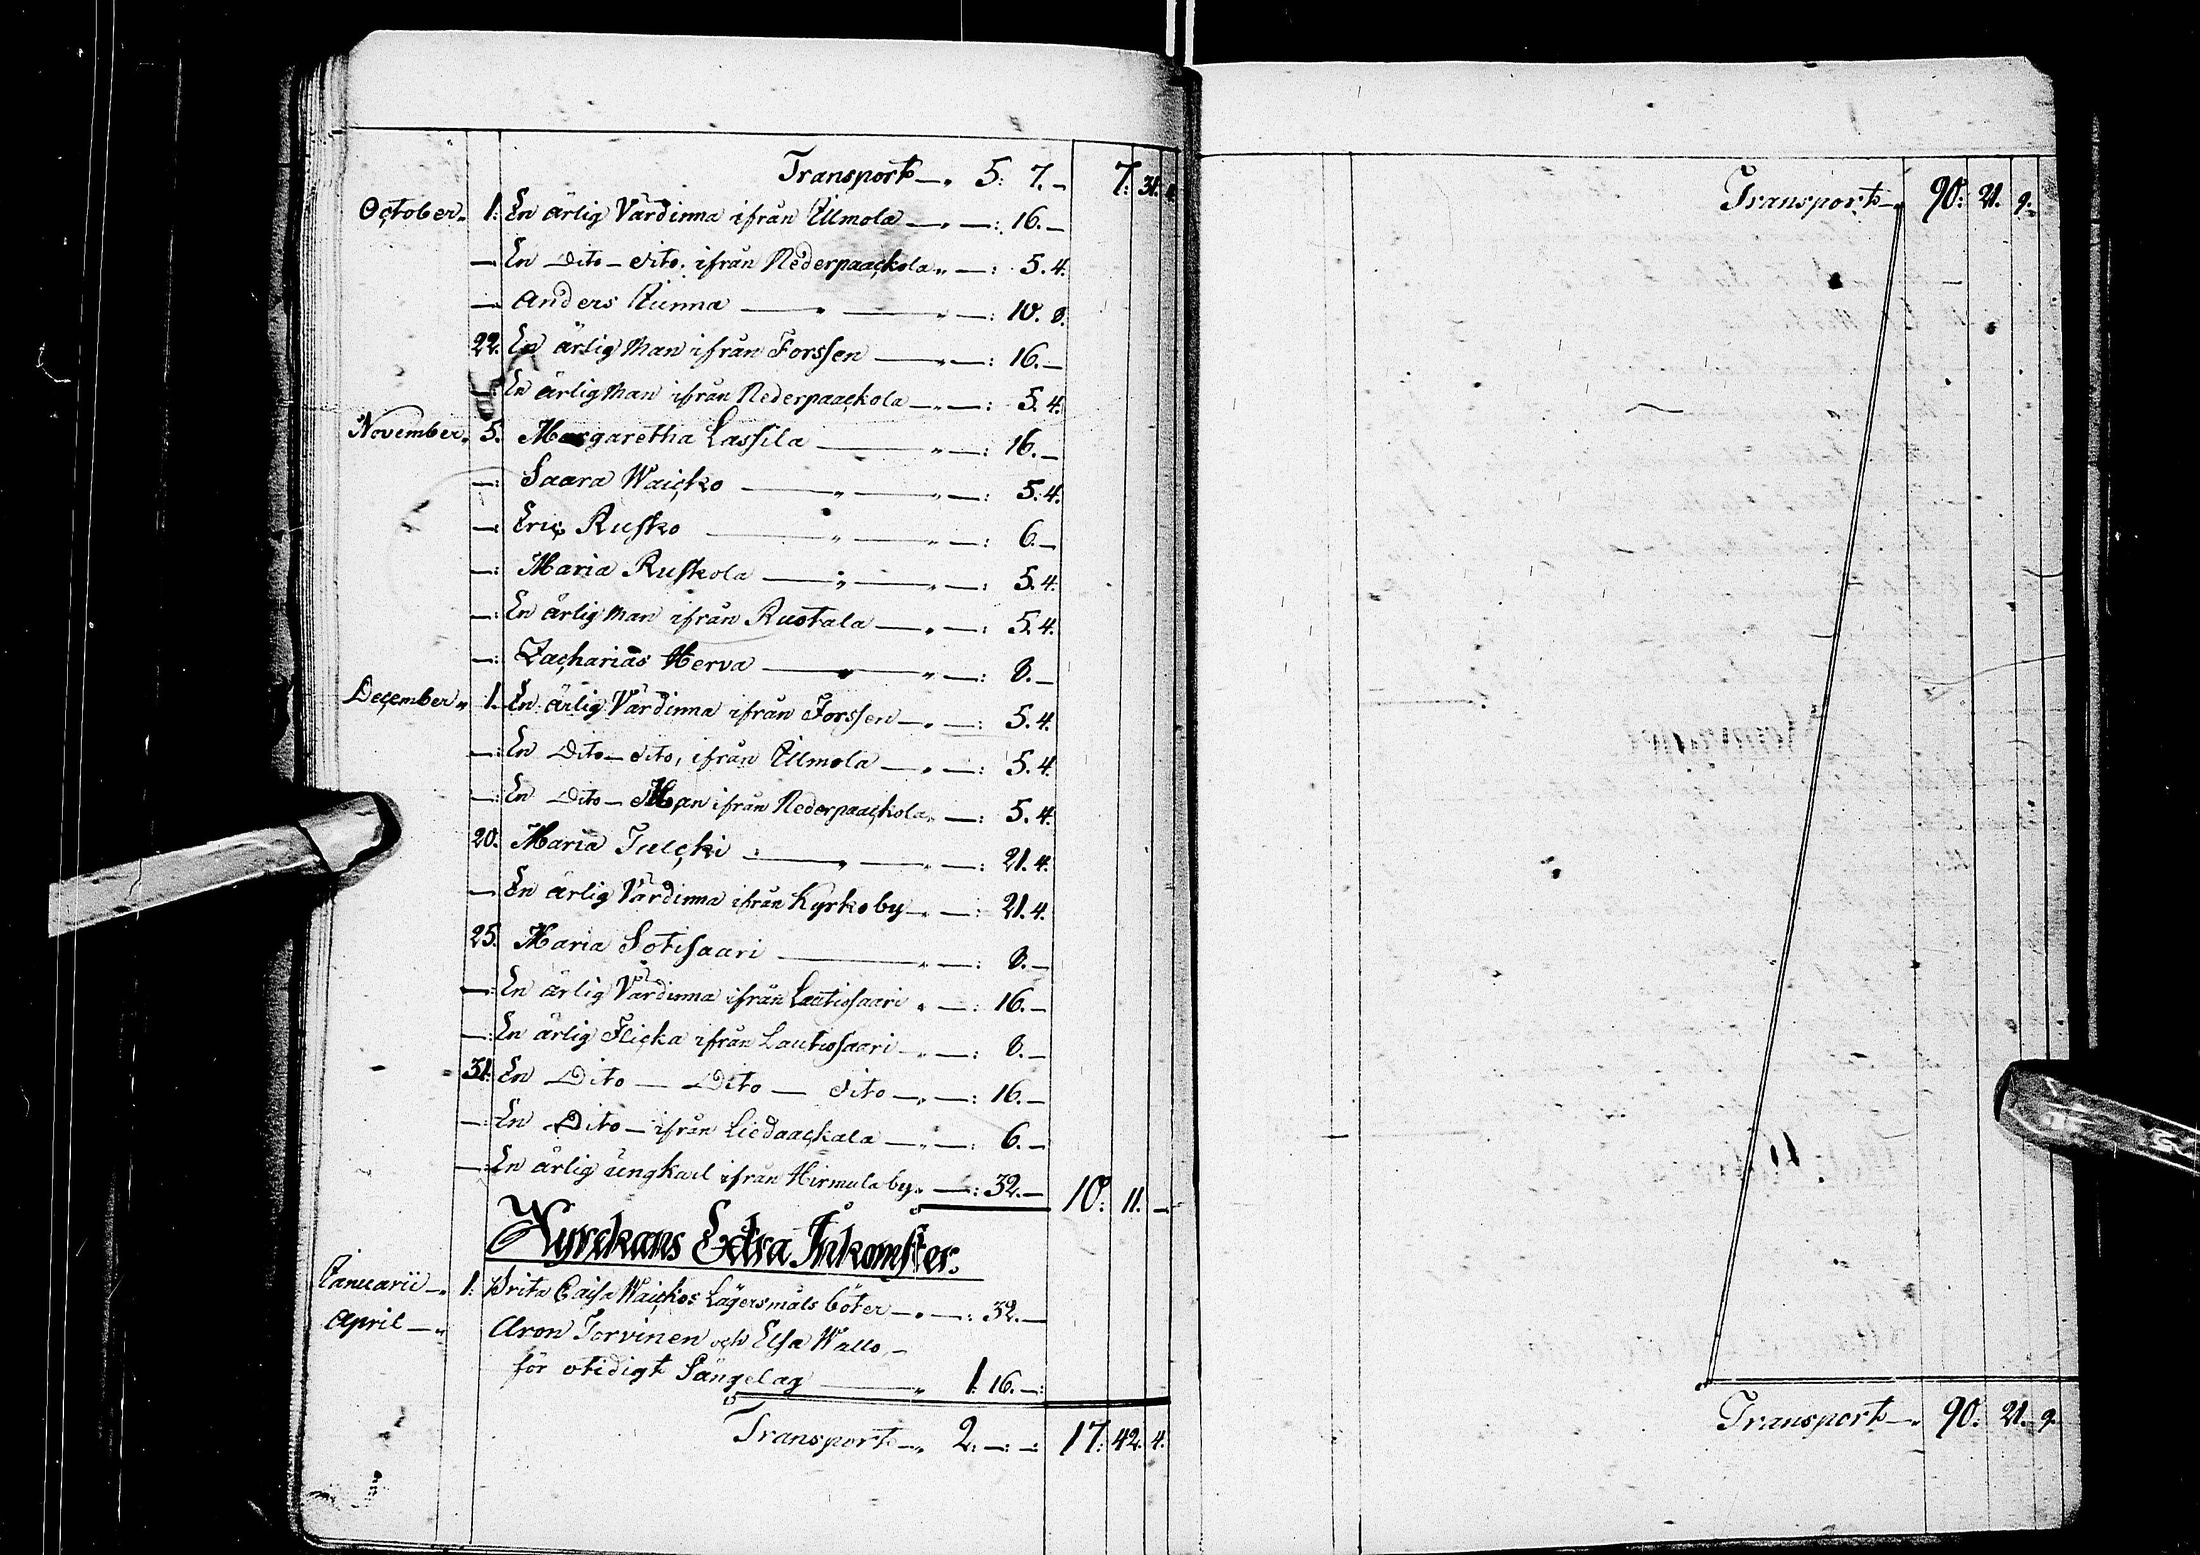 Transport —„ 5: 7.— 7: 31. 4.
October„ 1: En ärlig Värdinna ifrån Ållmola —„—: 16.—
— En Dito — dito, ifrån Nederpaackola„ —: 5. 4.
— Anders Kunna —„—„—: 10. 8.
22. En ärlig Man ifrån Forssen —„—: 16.—
En ärlig Man ifrån Nederpaackola —„—: 5. 4.
November„ 5. Margaretha Lassila —„—: 16.—
—: Saara Waicko —„—„—: 5. 4.
—: Eric Rusko —„—„—: 6.—
—: Maria Ruskola —„—„—: 5. 4.
—: En ärlig Man ifrån Ruotala —„—: 5. 4.
—: Zacharias Herva —„—„—: 8.—
December„ 1. En ärlig Värdinna ifrån Forssen —„—: 5. 4.
—: En Dito — dito, ifrån Ållmola —„—: 5. 4.
—: En Dito — Man ifrån Nederpaackola„ —: 5. 4.
20. Maria Julcki —„—„—: 21. 4.
— En ärlig Värdinna ifrån Kyrkoby —„—: 21. 4.
25. Maria Sotisaari —„—: 8.—
—: En ärlig Värdinna ifrån Lautiosaari „—: 16.—
—: En ärlig Flicka ifrån Lautiosaari —„—: 8.—
31. En Dito — Dito — dito —„—: 16.—
—: En Dito — ifrån Liedaackala —„—: 6.—
—: En ärlig ungkarl ifrån Hirmula by„ —: 32.— 10: 11. —
Kyrckans Extra Inkomster.
Januarii —„ 1: Brita Caisa Waickos Lägersmåls böter —„—: 32.—
April —„ Aron Torvinen och Elsa Wallo —
för otidigt Sängelag —„ 1: 16.—:
Transport —„ 2: —: —: 17: 42. 4.
Transport —„ 90: 21. 9.
Transport —„ 90: 21. 9.